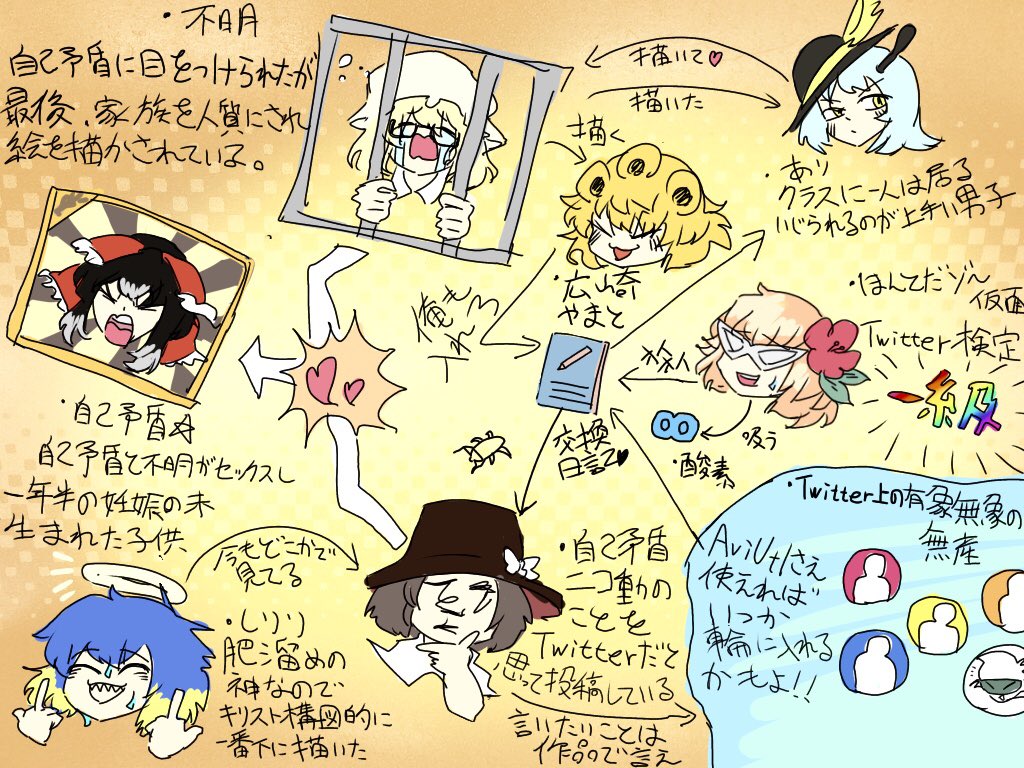 ・不明
自己矛盾に目をつけられたが
最後、家族を人質にされ
絵を描かされている。
描いて♡
描いた
描く
・あり
クラスに一人は居る
いじられるのが上手い男子
・広崎
やまと
俺も
入れろ
・ほんてだゾん
仮面
Twitter検定
一級
殺人
吸う
・酸素
交換
日記♡
・自己矛盾母
自己矛盾と不明がセックスし
一年半の妊娠の末
生まれた子供
今もどこかで
見てる
・しりり
肥溜めの
神なので
キリスト構図的に
一番下に描いた
・自己矛盾
ニコ動の
ことを
Twitterだと
思って投稿している
言いたいことは
作品で言え
・Twitter上の有象無象の
無産
AviUtlさえ
使えれば
いつか
輪に入れる
かもよ!!